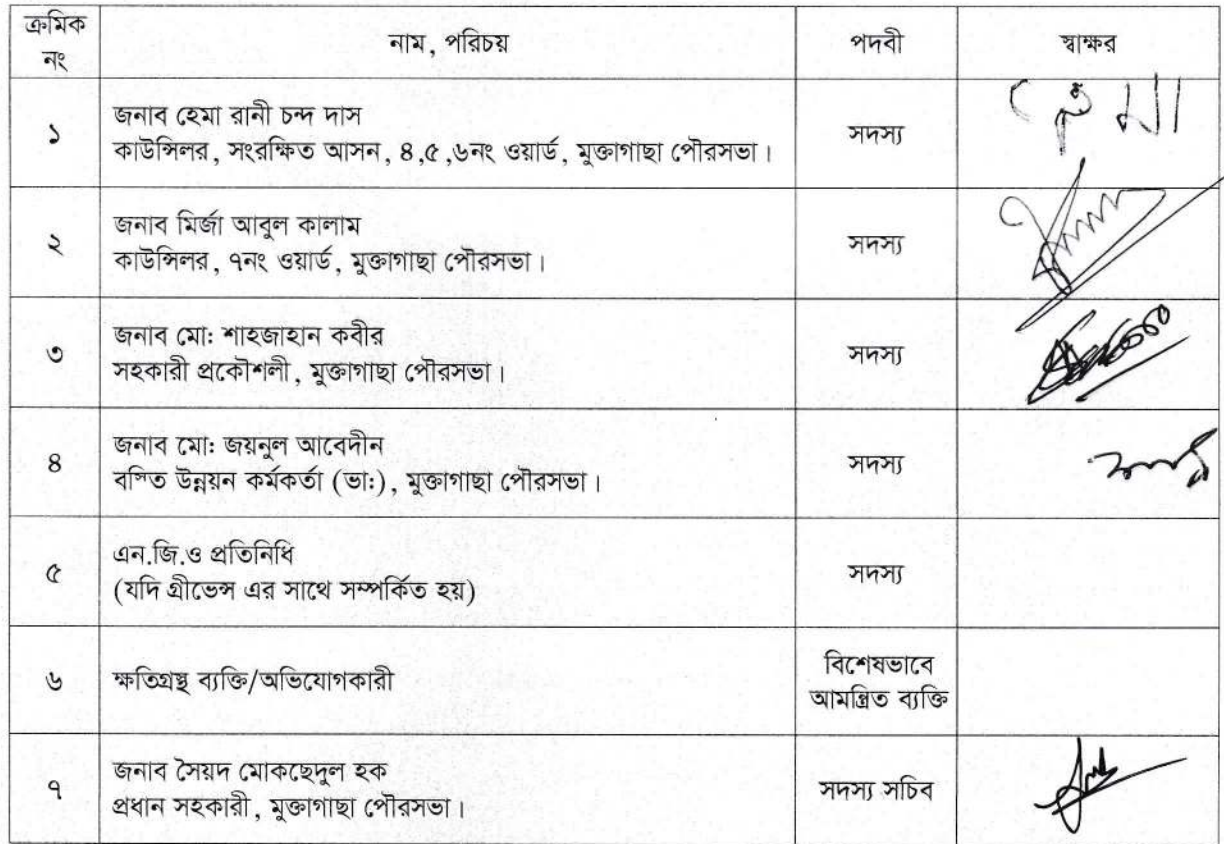 ক্রমিক নং নাম, পরিচয় পদবী স্বাক্ষর
১ জনাব হেমা রানী চন্দ দাস
কাউন্সিলর, সংরক্ষিত আসন, ৪,৫,৬নং ওয়ার্ড, মুক্তাগাছা পৌরসভা। সদস্য হেমা
২ জনাব মির্জা আবুল কালাম
কাউন্সিলর, ৭নং ওয়ার্ড, মুক্তাগাছা পৌরসভা। সদস্য
৩ জনাব মো: শাহজাহান কবীর
সহকারী প্রকৌশলী, মুক্তাগাছা পৌরসভা। সদস্য
৪ জনাব মো: জয়নুল আবেদীন
বস্তি উন্নয়ন কর্মকর্তা (ভা:), মুক্তাগাছা পৌরসভা। সদস্য
৫ এন.জি.ও প্রতিনিধি
(যদি গ্রীভেন্স এর সাথে সম্পর্কিত হয়) সদস্য
৬ ক্ষতিগ্রস্থ ব্যক্তি/অভিযোগকারী বিশেষভাবে
আমন্ত্রিত ব্যক্তি
৭ জনাব সৈয়দ মোকছেদুল হক
প্রধান সহকারী, মুক্তাগাছা পৌরসভা। সদস্য সচিব